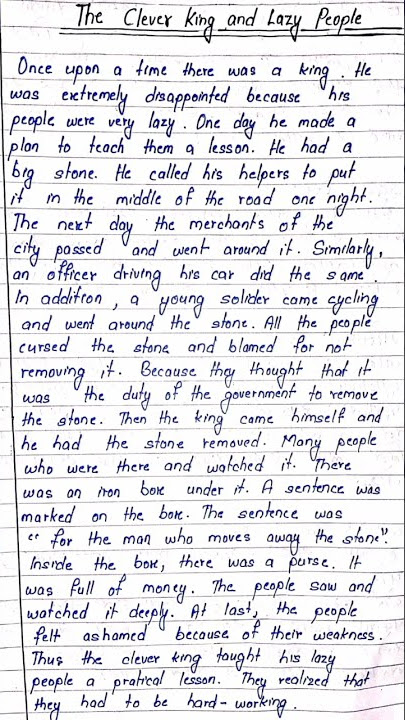 The Clever King and Lazy People
Once upon a time there was a king. He
was extremely disappointed because his
people were very lazy. One day he made a
plan to teach them a lesson. He had a
big stone. He called his helpers to put
it in the middle of the road one night.
The next day the merchants of the
city passed and went around it. Similarly,
an officer driving his car did the same.
In addition, a young solider came cycling
and went around the stone. All the people
cursed the stone and blamed for not
removing it. Because they thought that it
was the duty of the government to remove
the stone. Then the king came himself and
he had the stone removed. Many people
who were there and watched it. There
was an iron box under it. A sentence was
marked on the box. The sentence was
“ for the man who moves away the stone".
Inside the box, there was a purse. It
was full of money. The people saw and
watched it deeply. At last, the people
felt ashamed because of their weakness.
Thus the clever king taught his lazy
people a pratical lesson. They realized that
they had to be hard-working.